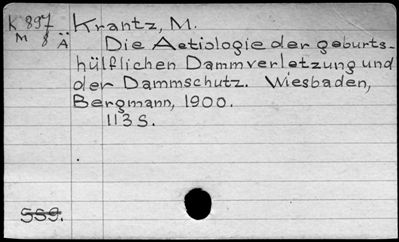 K 897 Krantz, M.
M 8 Ä
Die Aetiologie der geburts-
hülflichen Dammverletzung und
der Dammschutz. Wiesbaden,
Bergmann, 1900.
113 S.
559.